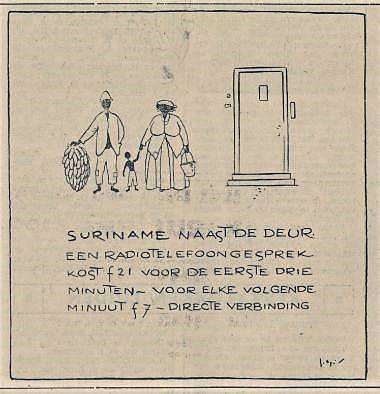 SURINAME NAAST DE DEUR.
EEN RADIOTELEFOONGESPREK
KOST f 21 VOOR DE EERSTE DRIE
MINUTEN – VOOR ELKE VOLGENDE
MINUUT f 7 – DIRECTE VERBINDING